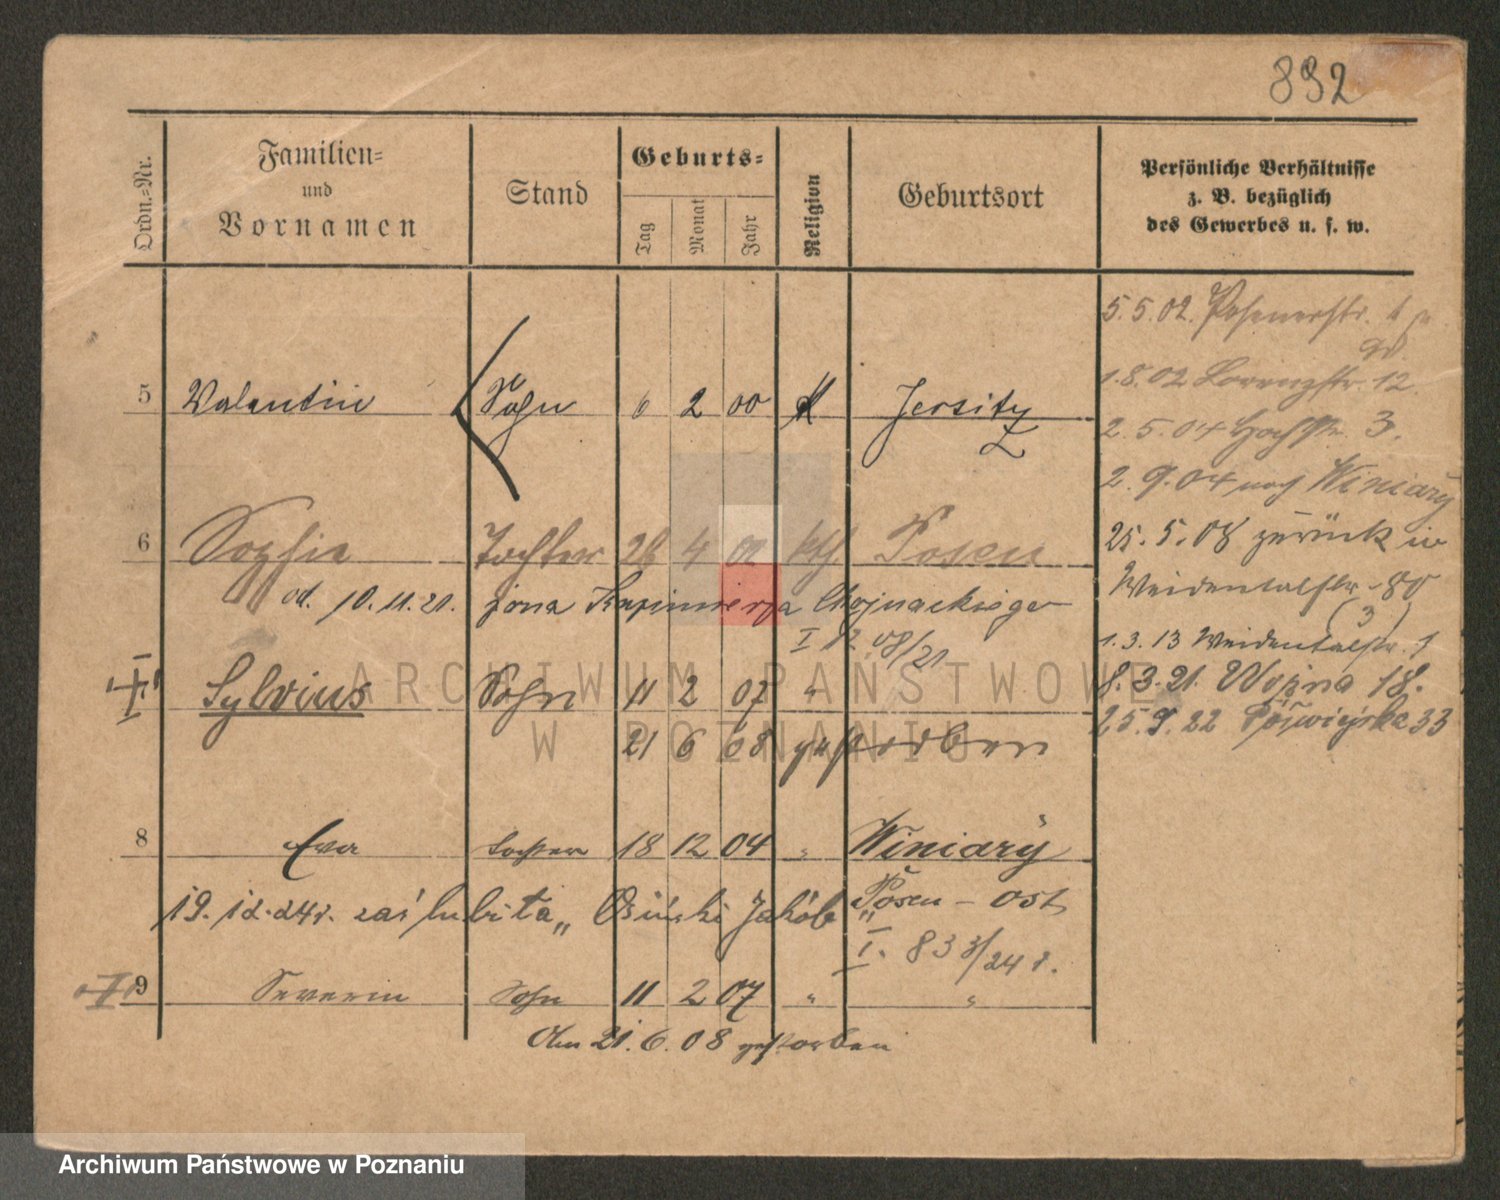 892
Ordn.=Nr.
Familien=
und
Vornamen
Stand
Geburts=
Tag
Monat
Jahr
Religion
Geburtsort
Persönliche Verhältnisse
z. B. bezüglich
des Gewerbes u. s. w.
5.5.02. Posenerstr. 1
1.8.02 Lorenzstr. 12
5 Valentin Sohn 6 2 00 Jersitz
2.5.04 Hochstr. 3.
2.9.04 nach Winiary
6 Sophie Tochter 26 4 01 kth Posen
25.5.08 zurück in
Weidentalstr. 80
(3)
od. 10.11.21. żona Kazimierza Chojnackiego
I 08/21
1.3.13 Weidentalstr. 1
Sylvius Sohn 11 2 07 "
8.3.21. Woźna 18.
25.9.22 33
21 6 08 gestorben
8 Eva Tochter 18 12 04 " Winiary
19. 12. 24 r. zaślubiła Osiński Jakób Posen - Ost
I. 83 3/24 r.
9 Severin Sohn 11 2 07 " "
Am 21.6.08 gestorben
ARCHIWUM PAŃSTWOWE
W POZNANIU
Archiwum Państwowe w Poznaniu